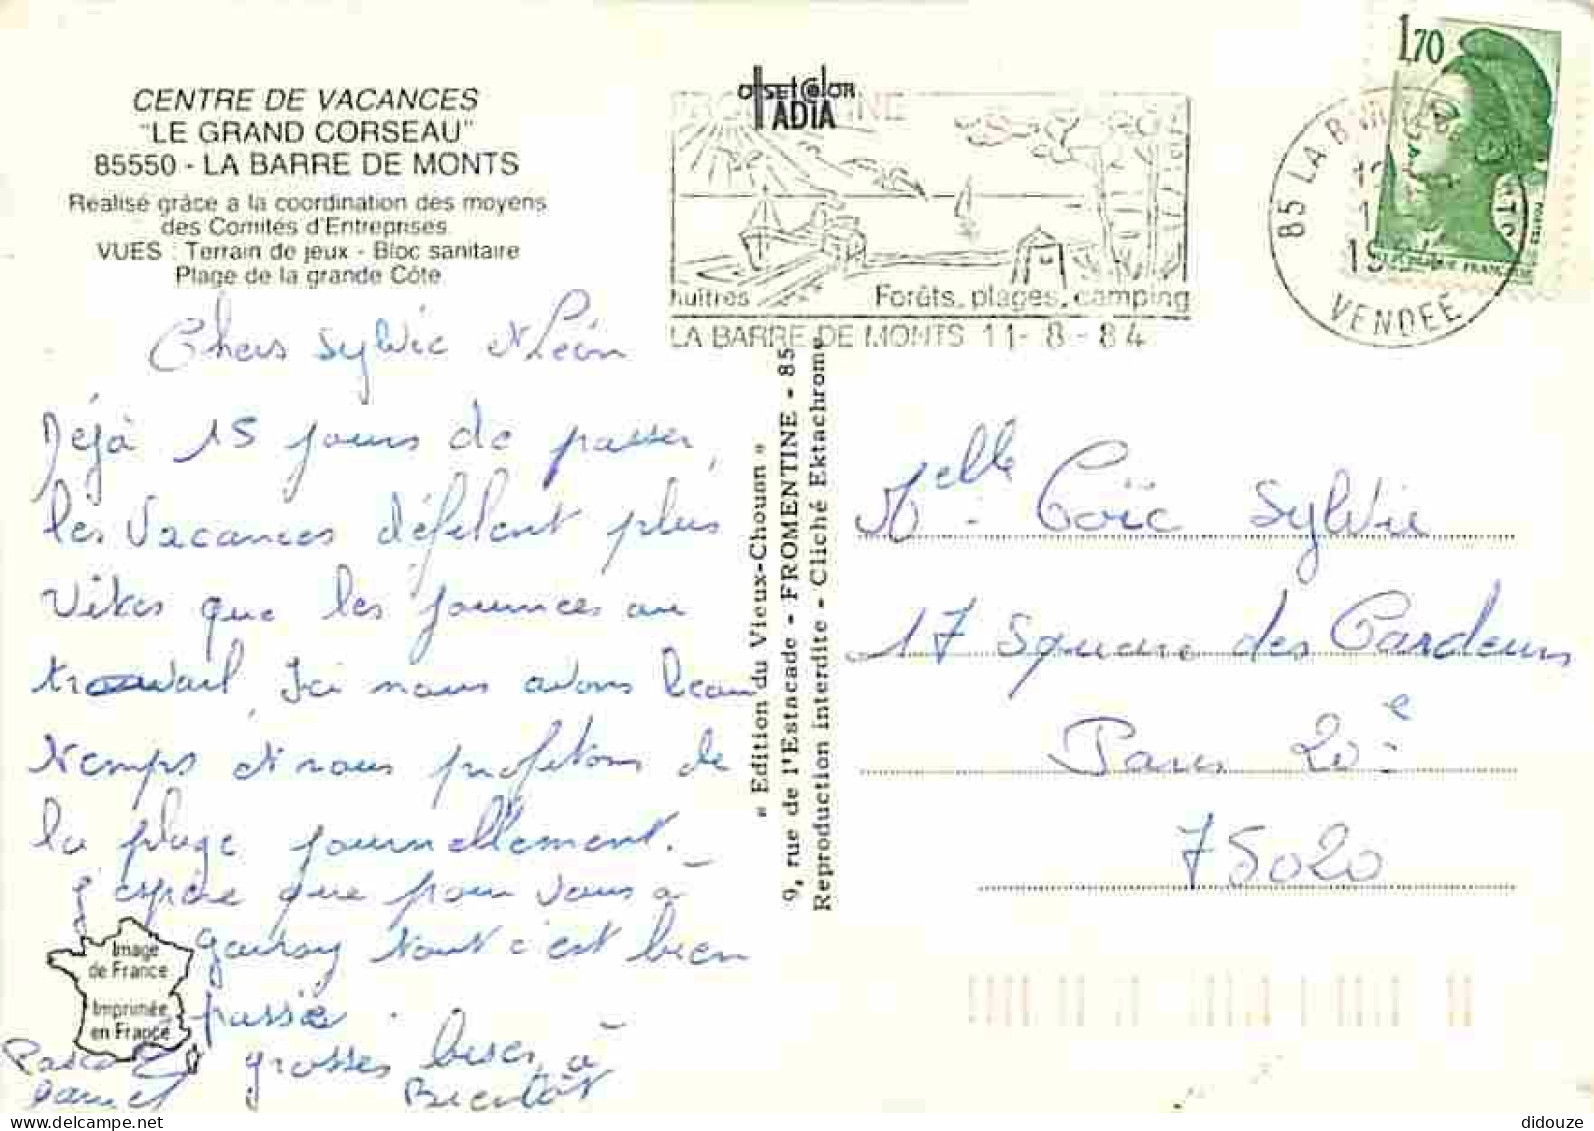 CENTRE DE VACANCES
"LE GRAND CORSEAU"
85550 - LA BARRE DE MONTS
Réalisé grâce a la coordination des moyens
des Comités d'Entreprises.
VUES : Terrain de jeux - Bloc sanitaire
Plage de la grande Côte
Chers Sylvie et Léon
Déjà 15 jours de passer,
les vacances défilent plus
vites que les journées au
travail, Ici nous avons beau
temps et nous profitons de
la plage journellement.
J'espère que pour vous à
tout c'est bien
passée.
grosses bises à
Bientôt
Image
de France
Imprimée
en France
offset color
ADIA
huîtres Forêts, plages, camping
LA BARRE DE MONTS 11-8-84
« Edition du Vieux-Chouan »
9, rue de l'Estacade - FROMENTINE - 85
Reproduction interdite - Cliché Ektachrome
1,70
85 LA B
VENDEE
Melle Coïc Sylvie
17 Square des Cardeurs
Paris 20e
75020
didouze